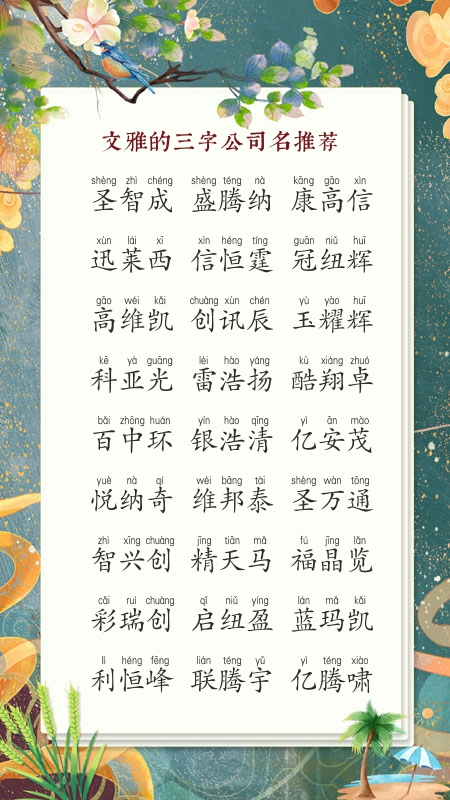 文雅的三字公司名推荐
shèng zhì chéng shèng téng nà kāng gāo xìn
圣智成 盛腾纳 康高信
xùn lái xī xìn héng tíng guān niǔ huī
迅莱西 信恒霆 冠纽辉
gāo wéi kǎi chuàng xùn chén yù yào huī
高维凯 创讯辰 玉耀辉
kē yà guāng léi hào yáng kù xiáng zhuó
科亚光 雷浩扬 酷翔卓
bǎi zhōng huán yín hào qīng yì ān mào
百中环 银浩清 亿安茂
yuè nà qí wéi bāng tài shèng wàn tōng
悦纳奇 维邦泰 圣万通
zhì xīng chuàng jīng tiān mǎ fú jīng lǎn
智兴创 精天马 福晶览
cǎi ruì chuàng qǐ niǔ yíng lán mǎ kǎi
彩瑞创 启纽盈 蓝玛凯
lì héng fēng lián téng yǔ yì téng xiào
利恒峰 联腾宇 亿腾啸